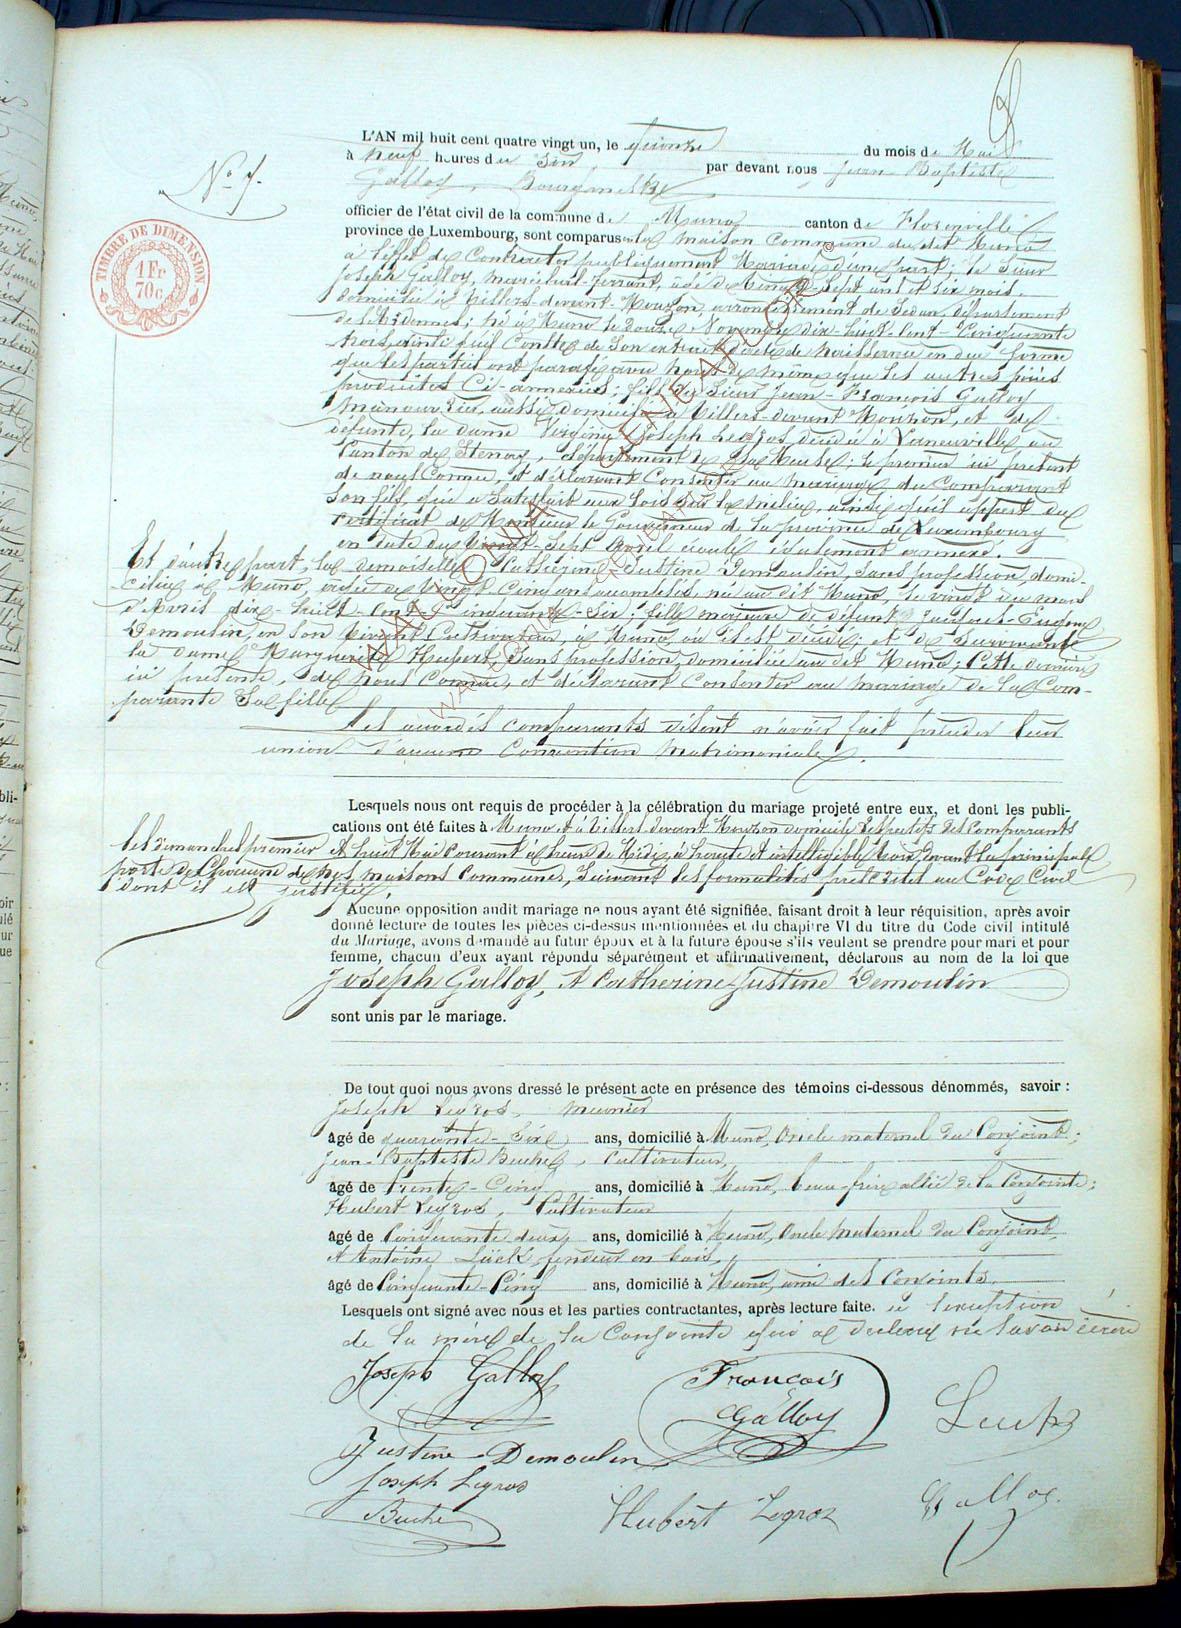 8
N° 7.
TIMBRE DE DIMENSION
1 Fr
70c
L'AN mil huit cent quatre vingt un, le quinze du mois de Mai
à neuf heures du Soir par devant nous Jean-Baptiste
Galloy, Bourgmestre
officier de l'état civil de la commune de Muno canton de Florenville
province de Luxembourg, sont comparus en la maison Commune du dit Muno
à l'effet de Contracter publiquement Mariage, d'une part, le Sieur
Joseph Galloy, maréchal-ferrant, âgé de Vingt-sept ans et six mois,
domicilié à Villers-devant-Mouzon, arrondissement de Sedan, département
des Ardennes; né à Muno le douze Novembre dix-huit-Cent-Cinquante
trois, ainsi qu'il Conste de son extrait d'acte de Naissance en due forme
que les parties ont parafé avec nous de même que les autres pièces
produites Ci-annexées; fils du Sieur Jean-François Galloy
Manouvrier, aussi domicilié à Villers-devant Mouzon, et de
défunte, la dame Joseph Legros, décédée à Laneuville au
Canton de Stenay, département de La Meuse; le premier ici présent
de nous Connu, et déclarant Consentir au mariage du Comparant
Son fils, qui a satisfait aux lois sur la milice, ainsi qu'il appert du
certificat de Monsieur le Gouverneur de la province de Luxembourg
en date du vingt-sept Avril écoulé également annexé.
Et d'autre part, la demoiselle Catherine Justine Demoulin, sans profession, domi-
ciliée à Muno, âgée de Vingt Cinq ans accomplis, née au dit Muno le vingt du mois
d'Avril dix-huit-Cent-Cinquante-Six; fille majeure de défunt Jacques-Eugène
Demoulin, en son vivant Cultivateur, à Muno où il est décédé; et de Survivante
la dame Marguerite Hubert Sans profession, domiciliée au dit Muno; Cette dernière
ici présente, de Nous Connue, et déclarant Consentir au mariage de la Com-
parante Sa fille
Les comparants disent n'avoir fait précéder leur
union d'aucune Convention Matrimoniale.
Lesquels nous ont requis de procéder à la célébration du mariage projeté entre eux, et dont les publi-
cations ont été faites à Muno et à Villers-devant Mouzon domicile respectifs des Comparants
les dimanches premier et huit Mai Courant à l'heure de Midi, à haute et intelligible voix devant la principale
porte de Chacune de Nos maisons Communes, Suivant les formalités prescrites au Code Civil
dont il est justifié.
Aucune opposition audit mariage ne nous ayant été signifiée, faisant droit à leur réquisition, après avoir
donné lecture de toutes les pièces ci-dessus mentionnées et du chapitre VI du titre du Code civil intitulé
du Mariage, avons demandé au futur époux et à la future épouse s'ils veulent se prendre pour mari et pour
femme, chacun d'eux ayant répondu séparément et affirmativement, déclarons au nom de la loi que
Joseph Galloy, et Catherine Justine Demoulin
sont unis par le mariage.
De tout quoi nous avons dressé le présent acte en présence des témoins ci-dessous dénommés, savoir :
Joseph Legros, meunier
âgé de quarante-Six ans, domicilié à Muno, Oncle maternel du Conjoint;
Jean-Baptiste Buche, Cultivateur,
âgé de trente-Cinq ans, domicilié à Muno, beau-frère allié de la Conjointe;
Hubert Legros, Cultivateur
âgé de Cinquante deux ans, domicilié à Muno, Oncle Maternel du Conjoint,
et Antoine Lück, fendeur en bois,
âgé de Cinquante-Cinq ans, domicilié à Muno, ami des Conjoints.
Lesquels ont signé avec nous et les parties contractantes, après lecture faite. à l'exception
de la mère de la Conjointe qui a déclaré ne savoir écrire
Joseph Galloy
François
Galloy
Luck
Justine Demoulin
Joseph Legros
Buche
Hubert Legros
Galloy.